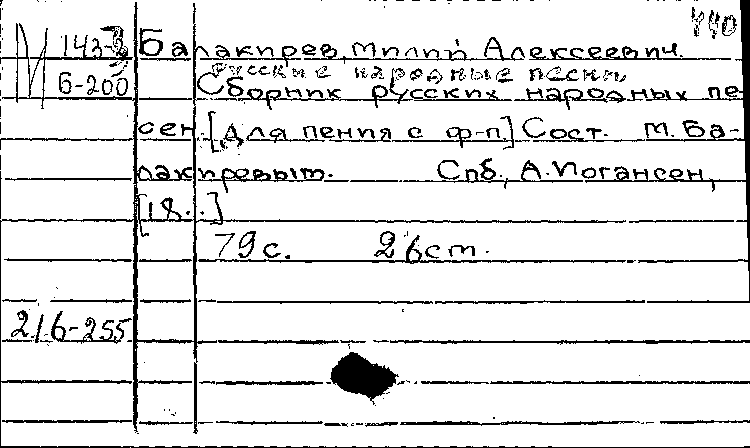 440
М 143-3 Балакирев, Милий Алексеевич.
Русские народные песни
Б-200 Сборник русских народных пе-
сен. [Для пения с ф-п.] Сост. М. Ба-
лакиревым. Спб., А. Иогансен,
[18..]
79 с. 26 см.
216-255